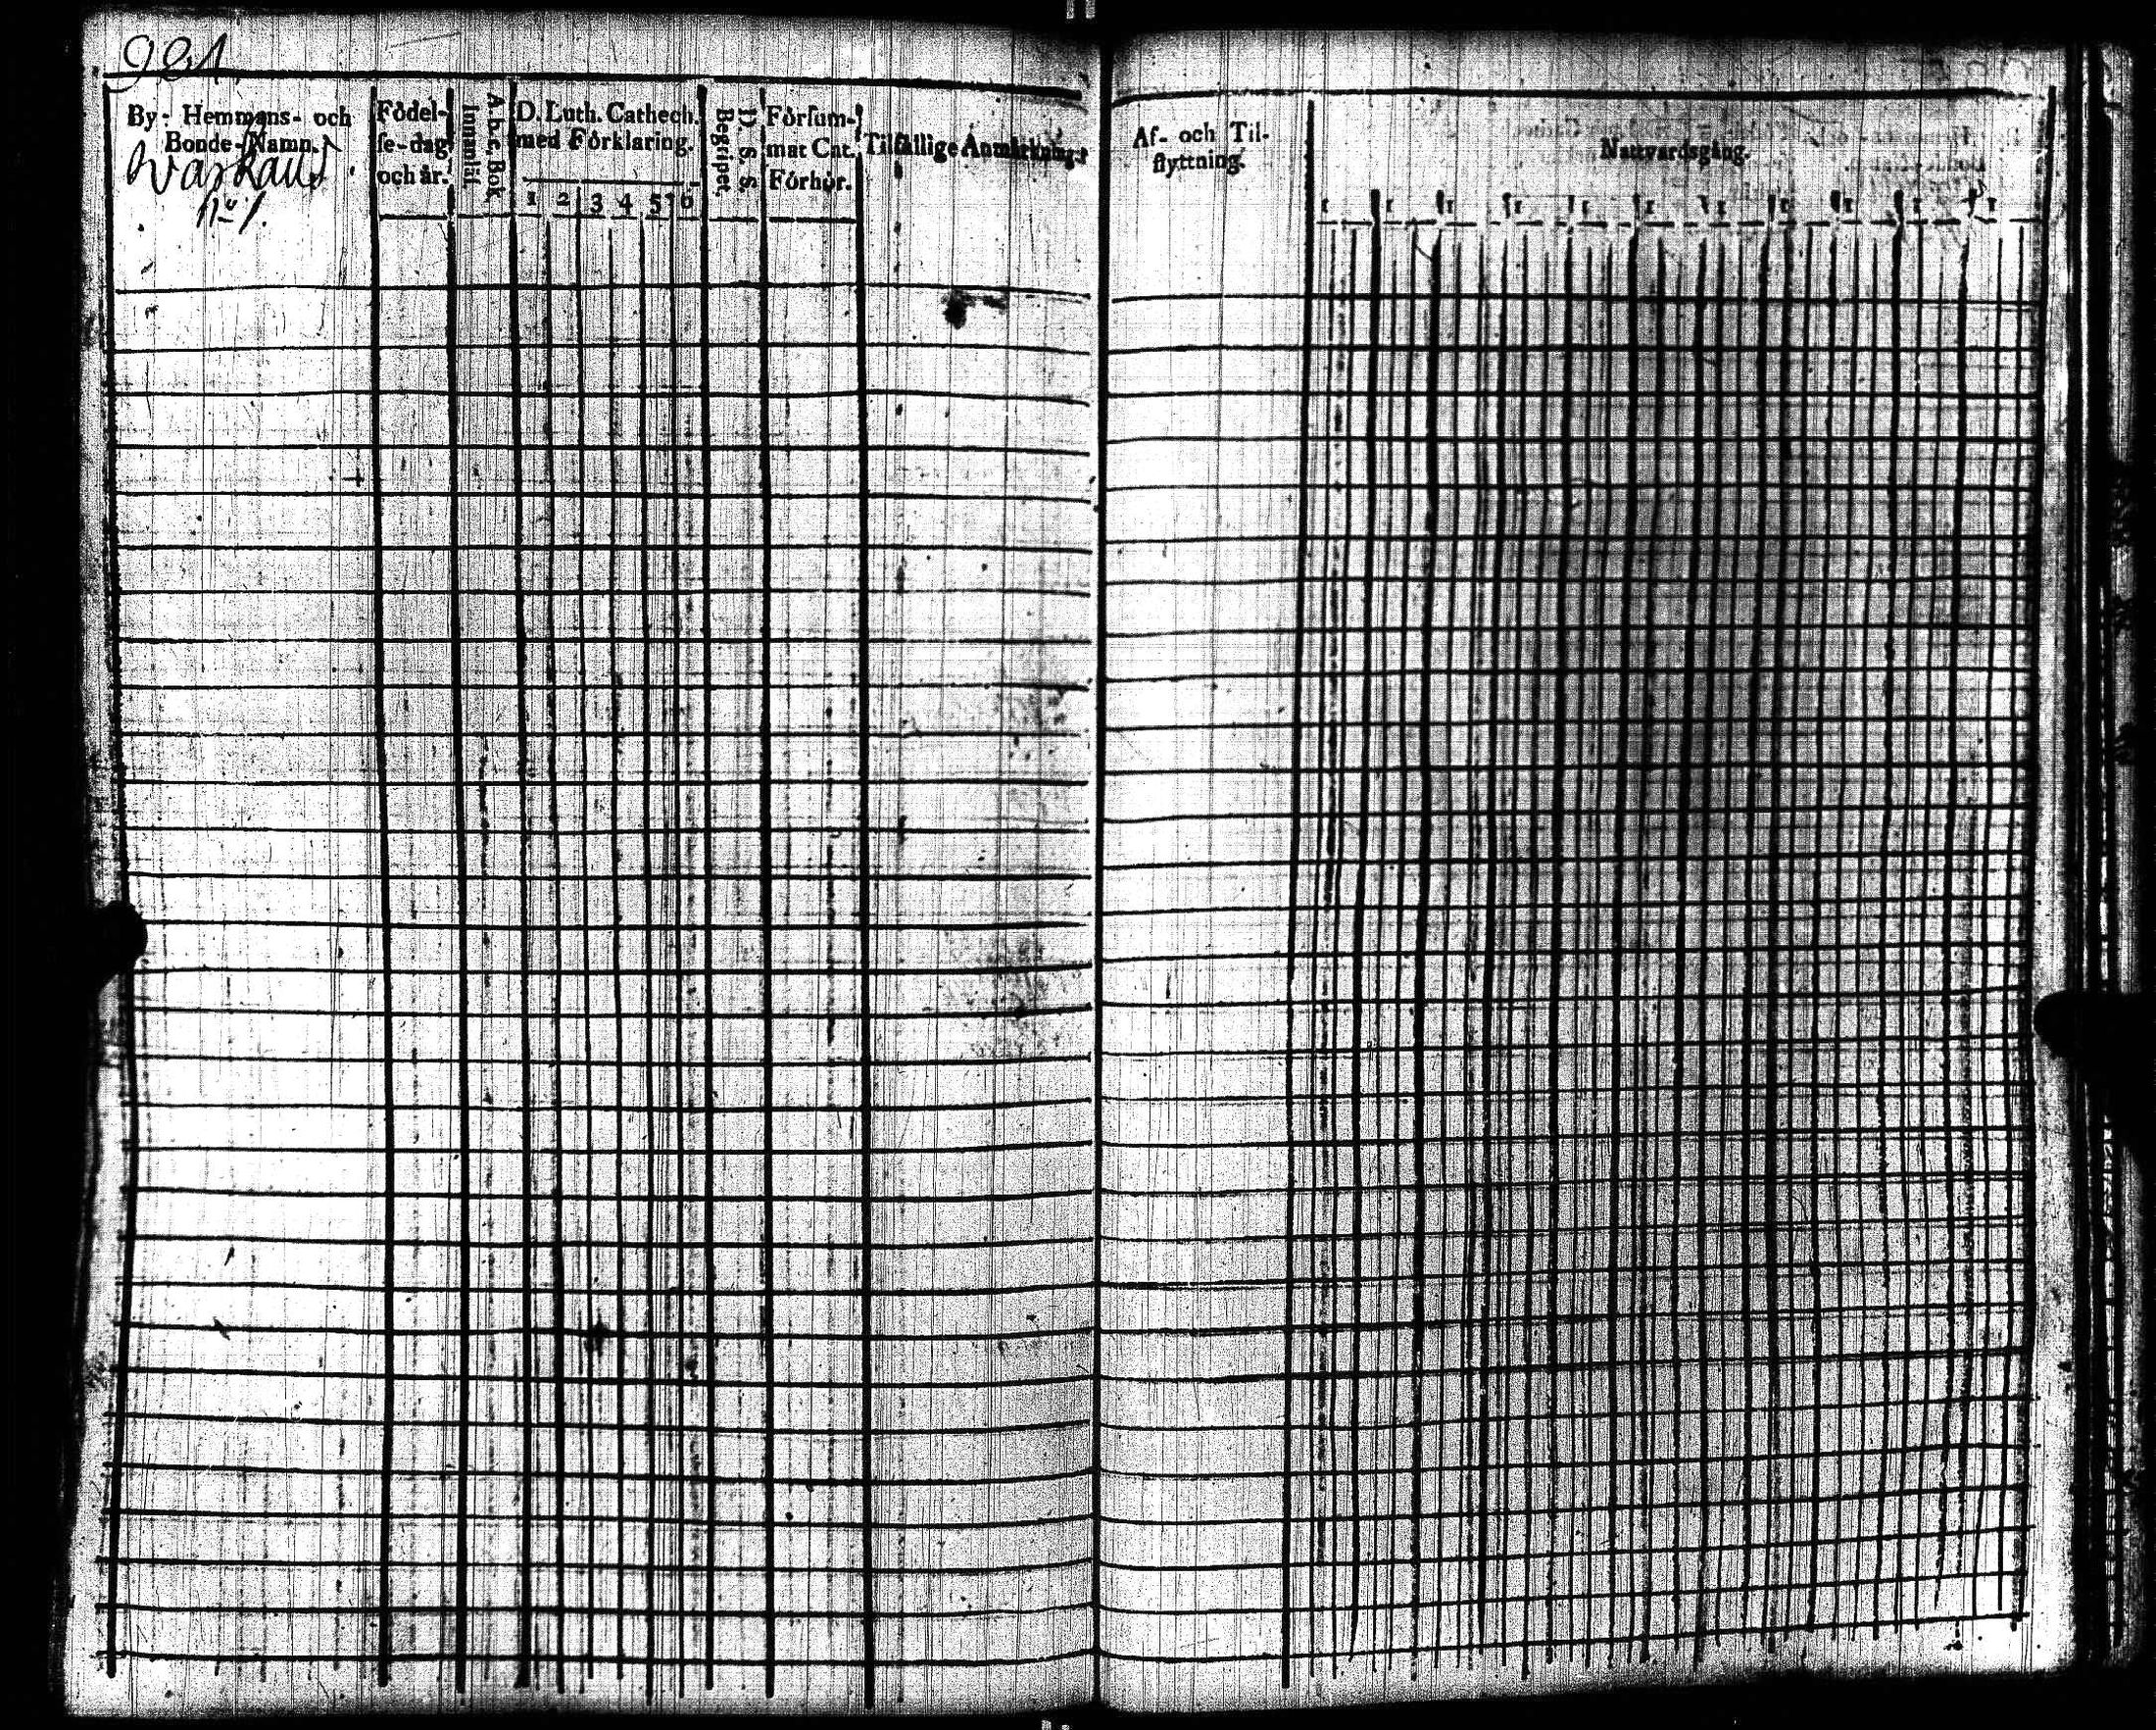 981
By- Hemmans- och
Bonde-Namn.
Warkaus
No 1.
Födel-
se-dag
och år.
A b c Bok
Innanläs.
D. Luth. Cathech.
med Förklaring.
1 2 3 4 5 6
D. S. S.
Begripet.
Försum-
mat Cat.
Förhör.
Tilfällige Anmärkning.
Af- och Til-
flyttning.
Nattvardsgång.